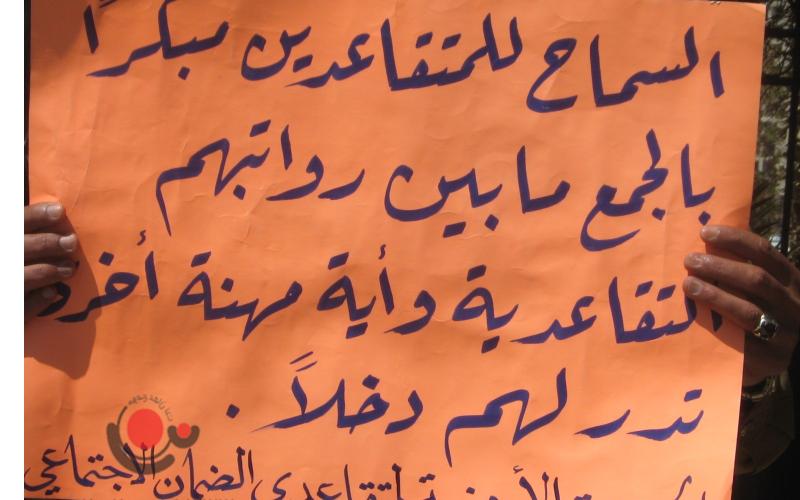 السماح للمتقاعدين مبكراً
بالجمع ما بين رواتبهم
التقاعدية وأية مهنة أخرى
تدر لهم دخلاً .
الضمان الاجتماعي